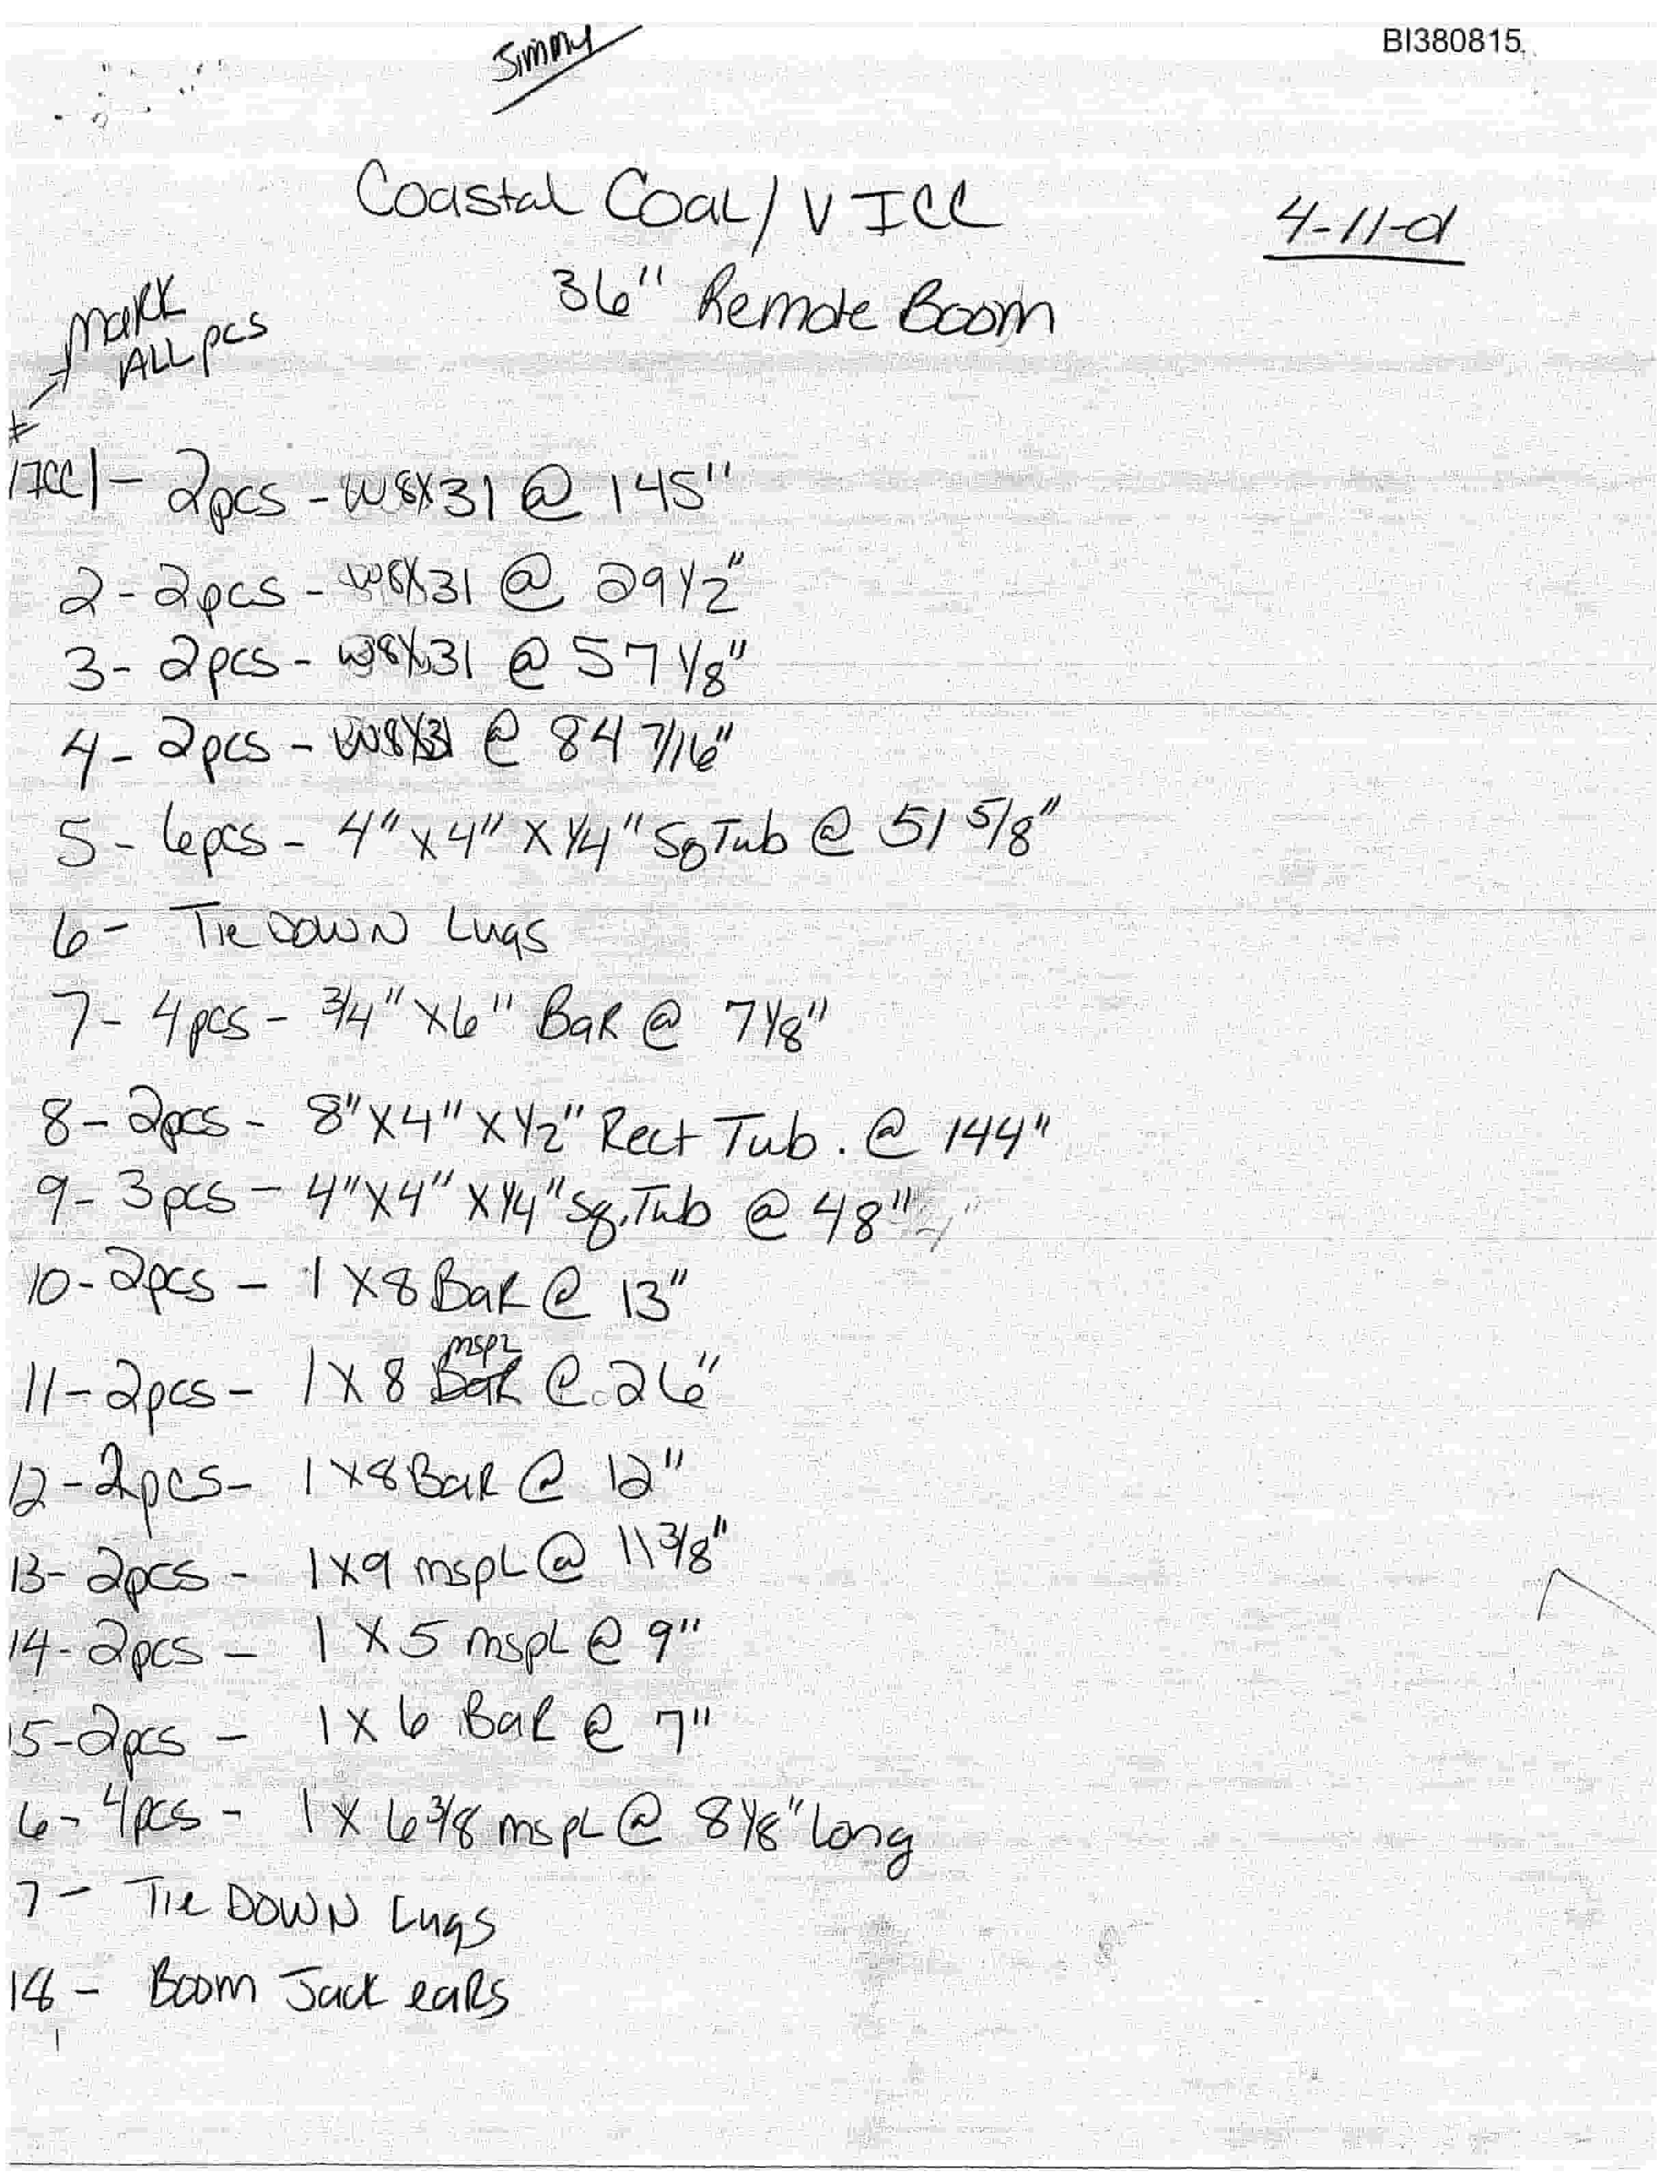 Jimmy
BI380815
Coastal Coal / VICC
4-11-01
36" Remote Boom
Mark
ALL pcs
1- 2pcs - W8X31 @ 145"
2- 2pcs - W8X31 @ 29 1/2"
3- 2pcs - W8X31 @ 57 1/8"
4- 2pcs - W8X31 @ 84 7/16"
5- 6pcs - 4" x 4" x 1/4" Sq Tub @ 51 5/8"
6- Tie Down Lugs
7- 4pcs - 3/4" x 6" Bar @ 7 1/8"
8- 2pcs - 8" x 4" x 1/2" Rect Tub. @ 144"
9- 3pcs - 4" x 4" x 1/4" Sq. Tub @ 48"
10- 2pcs - 1 X 8 Bar @ 13"
mspl
11- 2pcs - 1 X 8 Bar @ 26"
12- 2pcs - 1 X 8 Bar @ 12"
13- 2pcs - 1 X 9 mspL @ 11 3/8"
14- 2pcs - 1 X 5 mspL @ 9"
15- 2pcs - 1 X 6 Bar @ 7"
6- 4pcs - 1 X 6 3/8 mspL @ 8 1/8" Long
7- Tie DOWN Lugs
18- Boom Jack ears